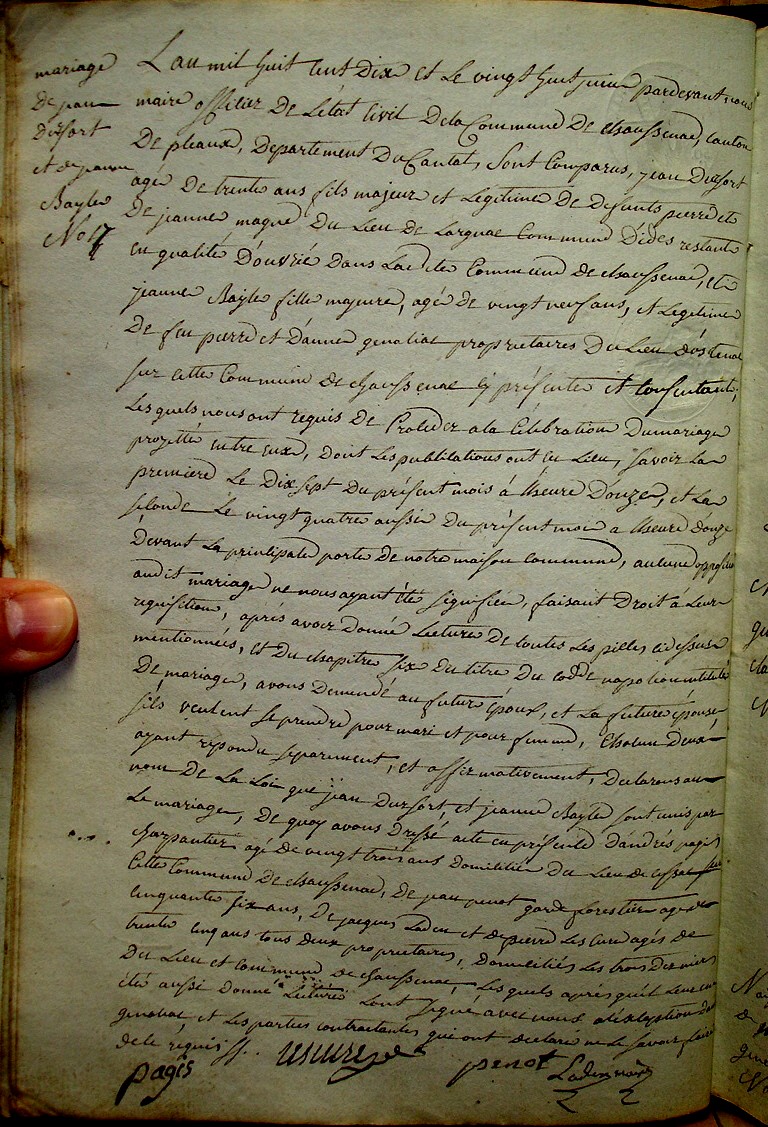 mariage
De jean
Durfort
et de jeanne
Bayle
No 17
L'an mil huit cent Dix et Le vingt huit juin pardevant nous
maire officier De L'état Civil De la Commune De chaussenac, canton
De pleaux, Departement Du Cantal, Sont Comparus, jean Durfort
agé De trente ans fils majeur et Legitime De Defunts pierre et
De jeanne magne Du Lieu De Commune D'ides restant
en qualité D'ouvrié Dans La dite Commune De chaussenac, et
jeanne Bayle fille majeure, agé De vingt neuf ans, et Legitime
De feu pierre et D'anne genoliac proprietaires Du Lieu
sur cette Commune De chaussenac ÿ présente et Consentante,
Lesquels nous ont requis De Proceder a la Célébration Du mariage
projetté entre eux, Dont Les publications ont eu Lieu, Savoir La
premiere Le Dix sept Du présent mois à Lheure Douze, et La
seconde Le vingt quatre aussi Du présent mois a Lheure Douze
Devant La principale porte De notre maison Commune, aucune opposition
audit mariage ne nous ayant été signifiée, faisant Droit à Leur
requisition, aprés avoir Donné Lecture De toutes Les pieces ci dessus
mentionnées, et Du chapitre six Du titre Du code napoleon intitulé
De mariage, avons Demandé au futur époux, et La future épouse
s'ils veulent se prendre pour mari et pour femme, Chacun D'eux
ayant repondu separement, et affirmativement, Declarons au
nom De La Loi que jean Durfort, et jeanne Bayle sont unis par
Le mariage, De quoy avons Dressé acte en présence D'andrés pagès
charpantier agé De vingt trois ans Domicilié Du Lieu De
Cette Commune De chaussenac, De jean penot garde forestier agé De
cinquante six ans, De jacques Laden et De pierre Lescure agés De
trente cinq ans tous deux proprietaires, Domiciliés Les trois Derniers
Du Lieu et Commune De chaussenac, Les quels aprés qu'il Leur en
été aussi Donné Lecture Lont signé avec nous a L'exception De La
genoliac et Les parties contractantes qui ont declaré ne Le Savoir faire
de ce requis
pagès
penot